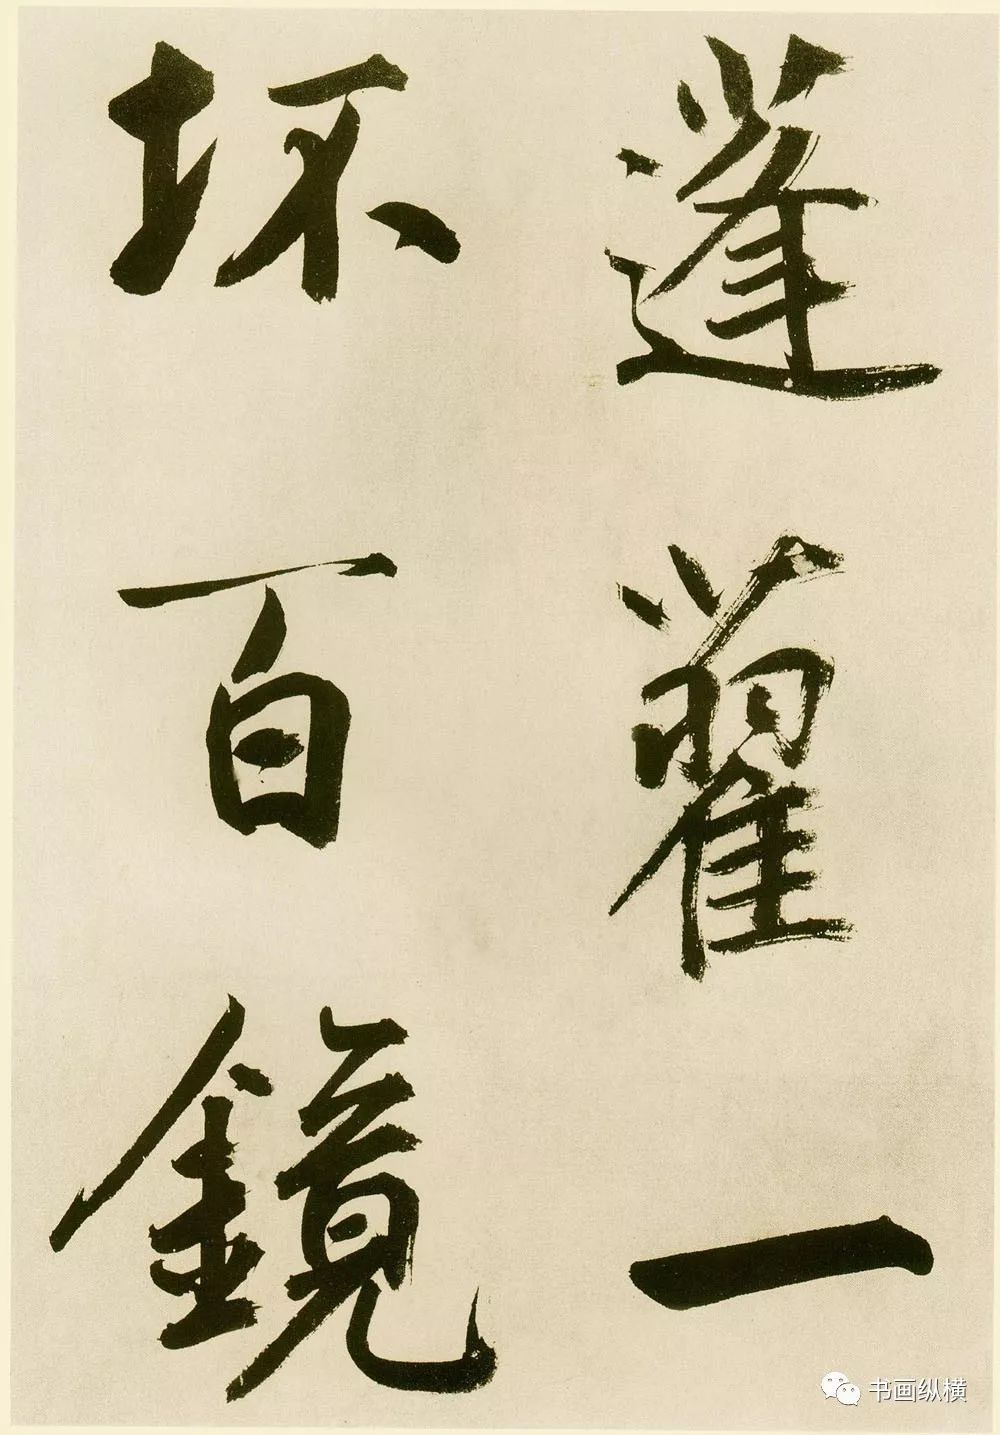 蓬藋一
坏百鏡
书画纵横